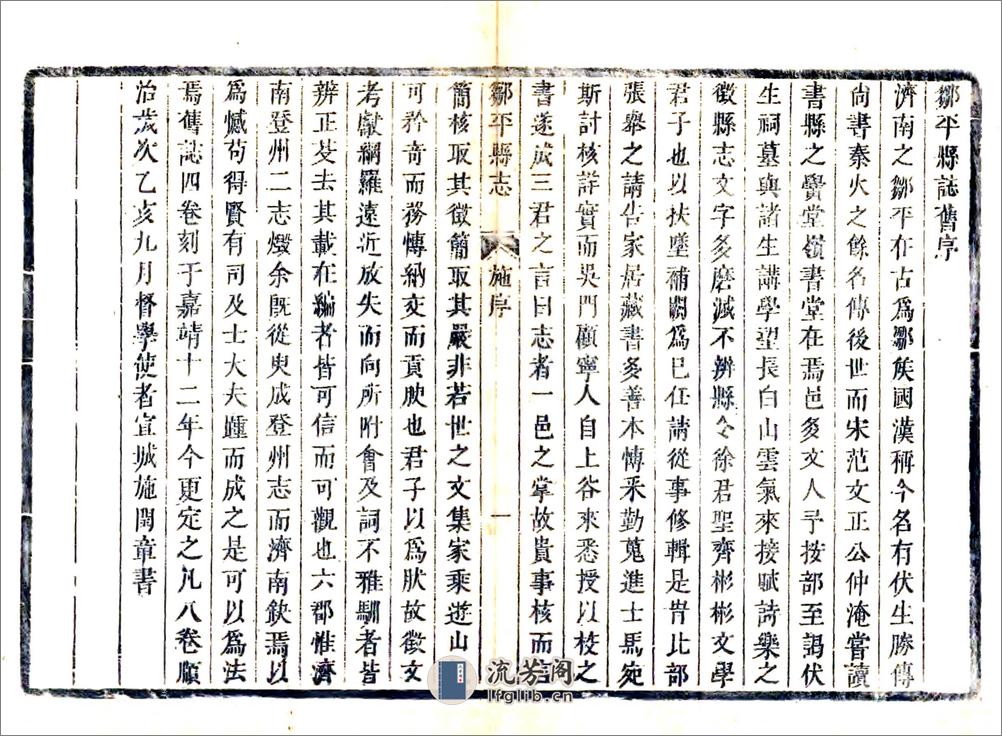 鄒平縣誌舊序
濟南之鄒平在古為鄒矦國漢稱今名有伏生勝傳
尚書秦火之餘名傳後世而宋范文正公仲淹嘗讀
書縣之黌堂嶺書堂在焉邑多文人予按部至謁伏
生祠墓與諸生講學望長白山雲氣來接賦詩樂之
徵縣志文字多磨滅不辨縣令徐君聖齊彬彬文學
君子也以扶墜補闕為已任請從事修輯是旹比部
張舉之請告家居藏書多善本愽釆勤蒐進士馬宛
斯討核詳實而吳門顧寧人自上谷來悉授以校之
書遂成三君之言曰志者一邑之掌故貴事核而言
鄒平縣志 施序 一
簡核取其徵簡取其嚴非若世之文集家乘遊山
可矜竒而務愽納交而貢腴也君子以為肰故徵文
考獻網羅遠近放失而向所附會及詞不雅馴者皆
辨正芟去其載在編者皆可信而可觀也六郡惟濟
南登州二志燬余旣從臾成登州志而濟南欽焉以
為憾苟得賢有司及士大夫踵而成之是可以為法
焉舊誌四卷刻于嘉靖十二年今更定之凡八卷順
治歲次乙亥九月督學使者宣城施閏章書
流芳阁
lfglib.cn